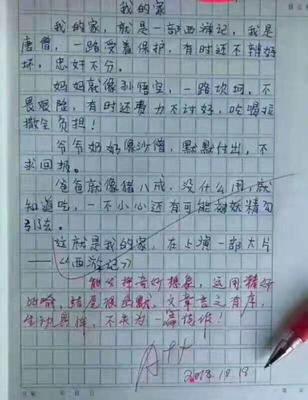 我的家
我的家，就是一部西游记，我是
唐僧，一路受着保护，有时还不辨好
坏，忠奸不分。
妈妈就像孙悟空，一路坎坷，不
畏艰险，有时还费力不讨好，吃喝拉
撒全负担！
爷爷奶奶像沙僧，默默付出，不
求回报。
爸爸就像猪八戒，没什么用，就
知道吃，一不小心还有可能被妖精勾
引去。
这就是我的家，在上演一部大片
——《西游记》
能发挥奇妙想象，运用精妙
的比喻，结尾很幽默，文章言之有序，
生动具体，不失为一篇佳作！
A++
10.19